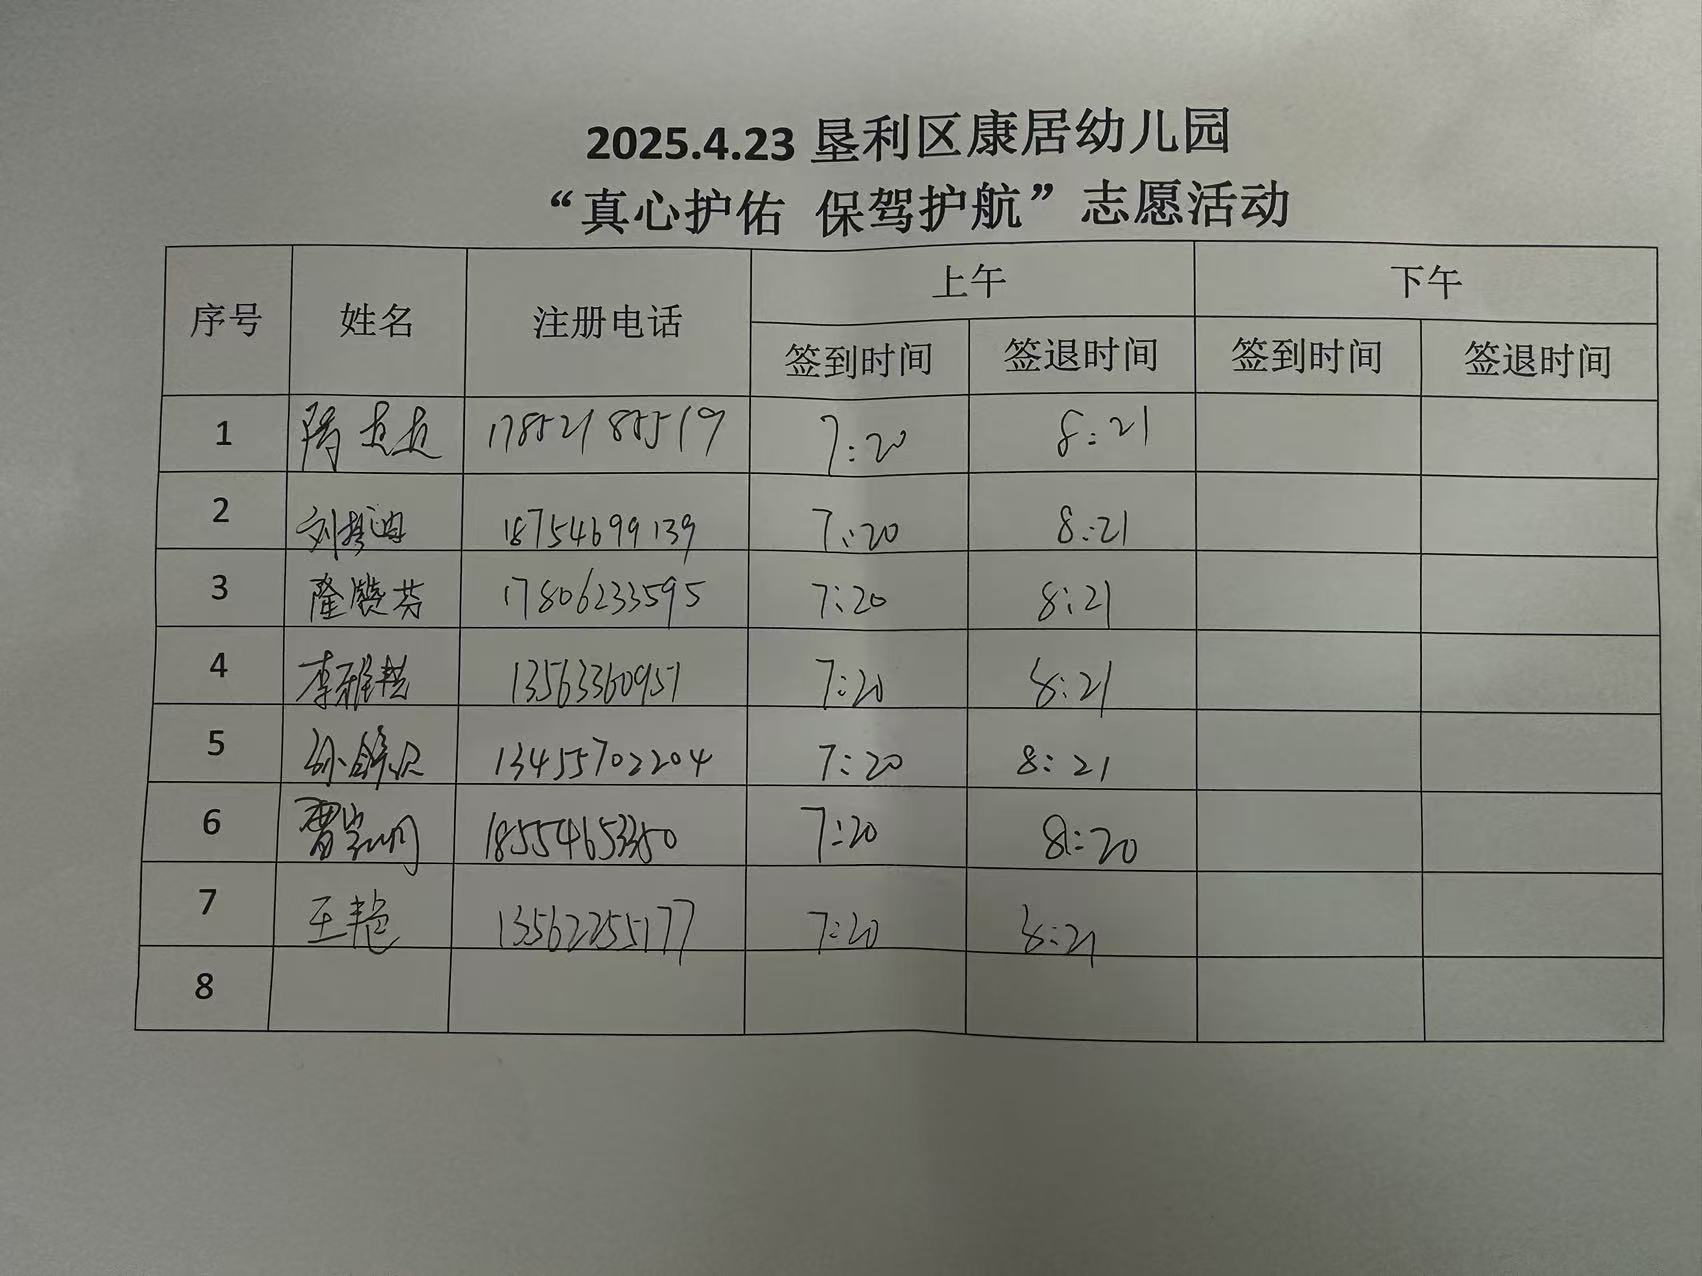 2025.4.23 垦利区康居幼儿园
“真心护佑 保驾护航”志愿活动
序号 姓名 注册电话 上午 下午
签到时间 签退时间 签到时间 签退时间
1 17852185519 7:20 8:21
2 刘梦迪 18754699139 7:20 8:21
3 隆赞芬 17806233595 7:20 8:21
4 李雅 13563360951 7:20 8:21
5 孙 13455702204 7:20 8:21
6 曹 18554653350 7:20 8:20
7 王艳 13562255177 7:20 8:21
8